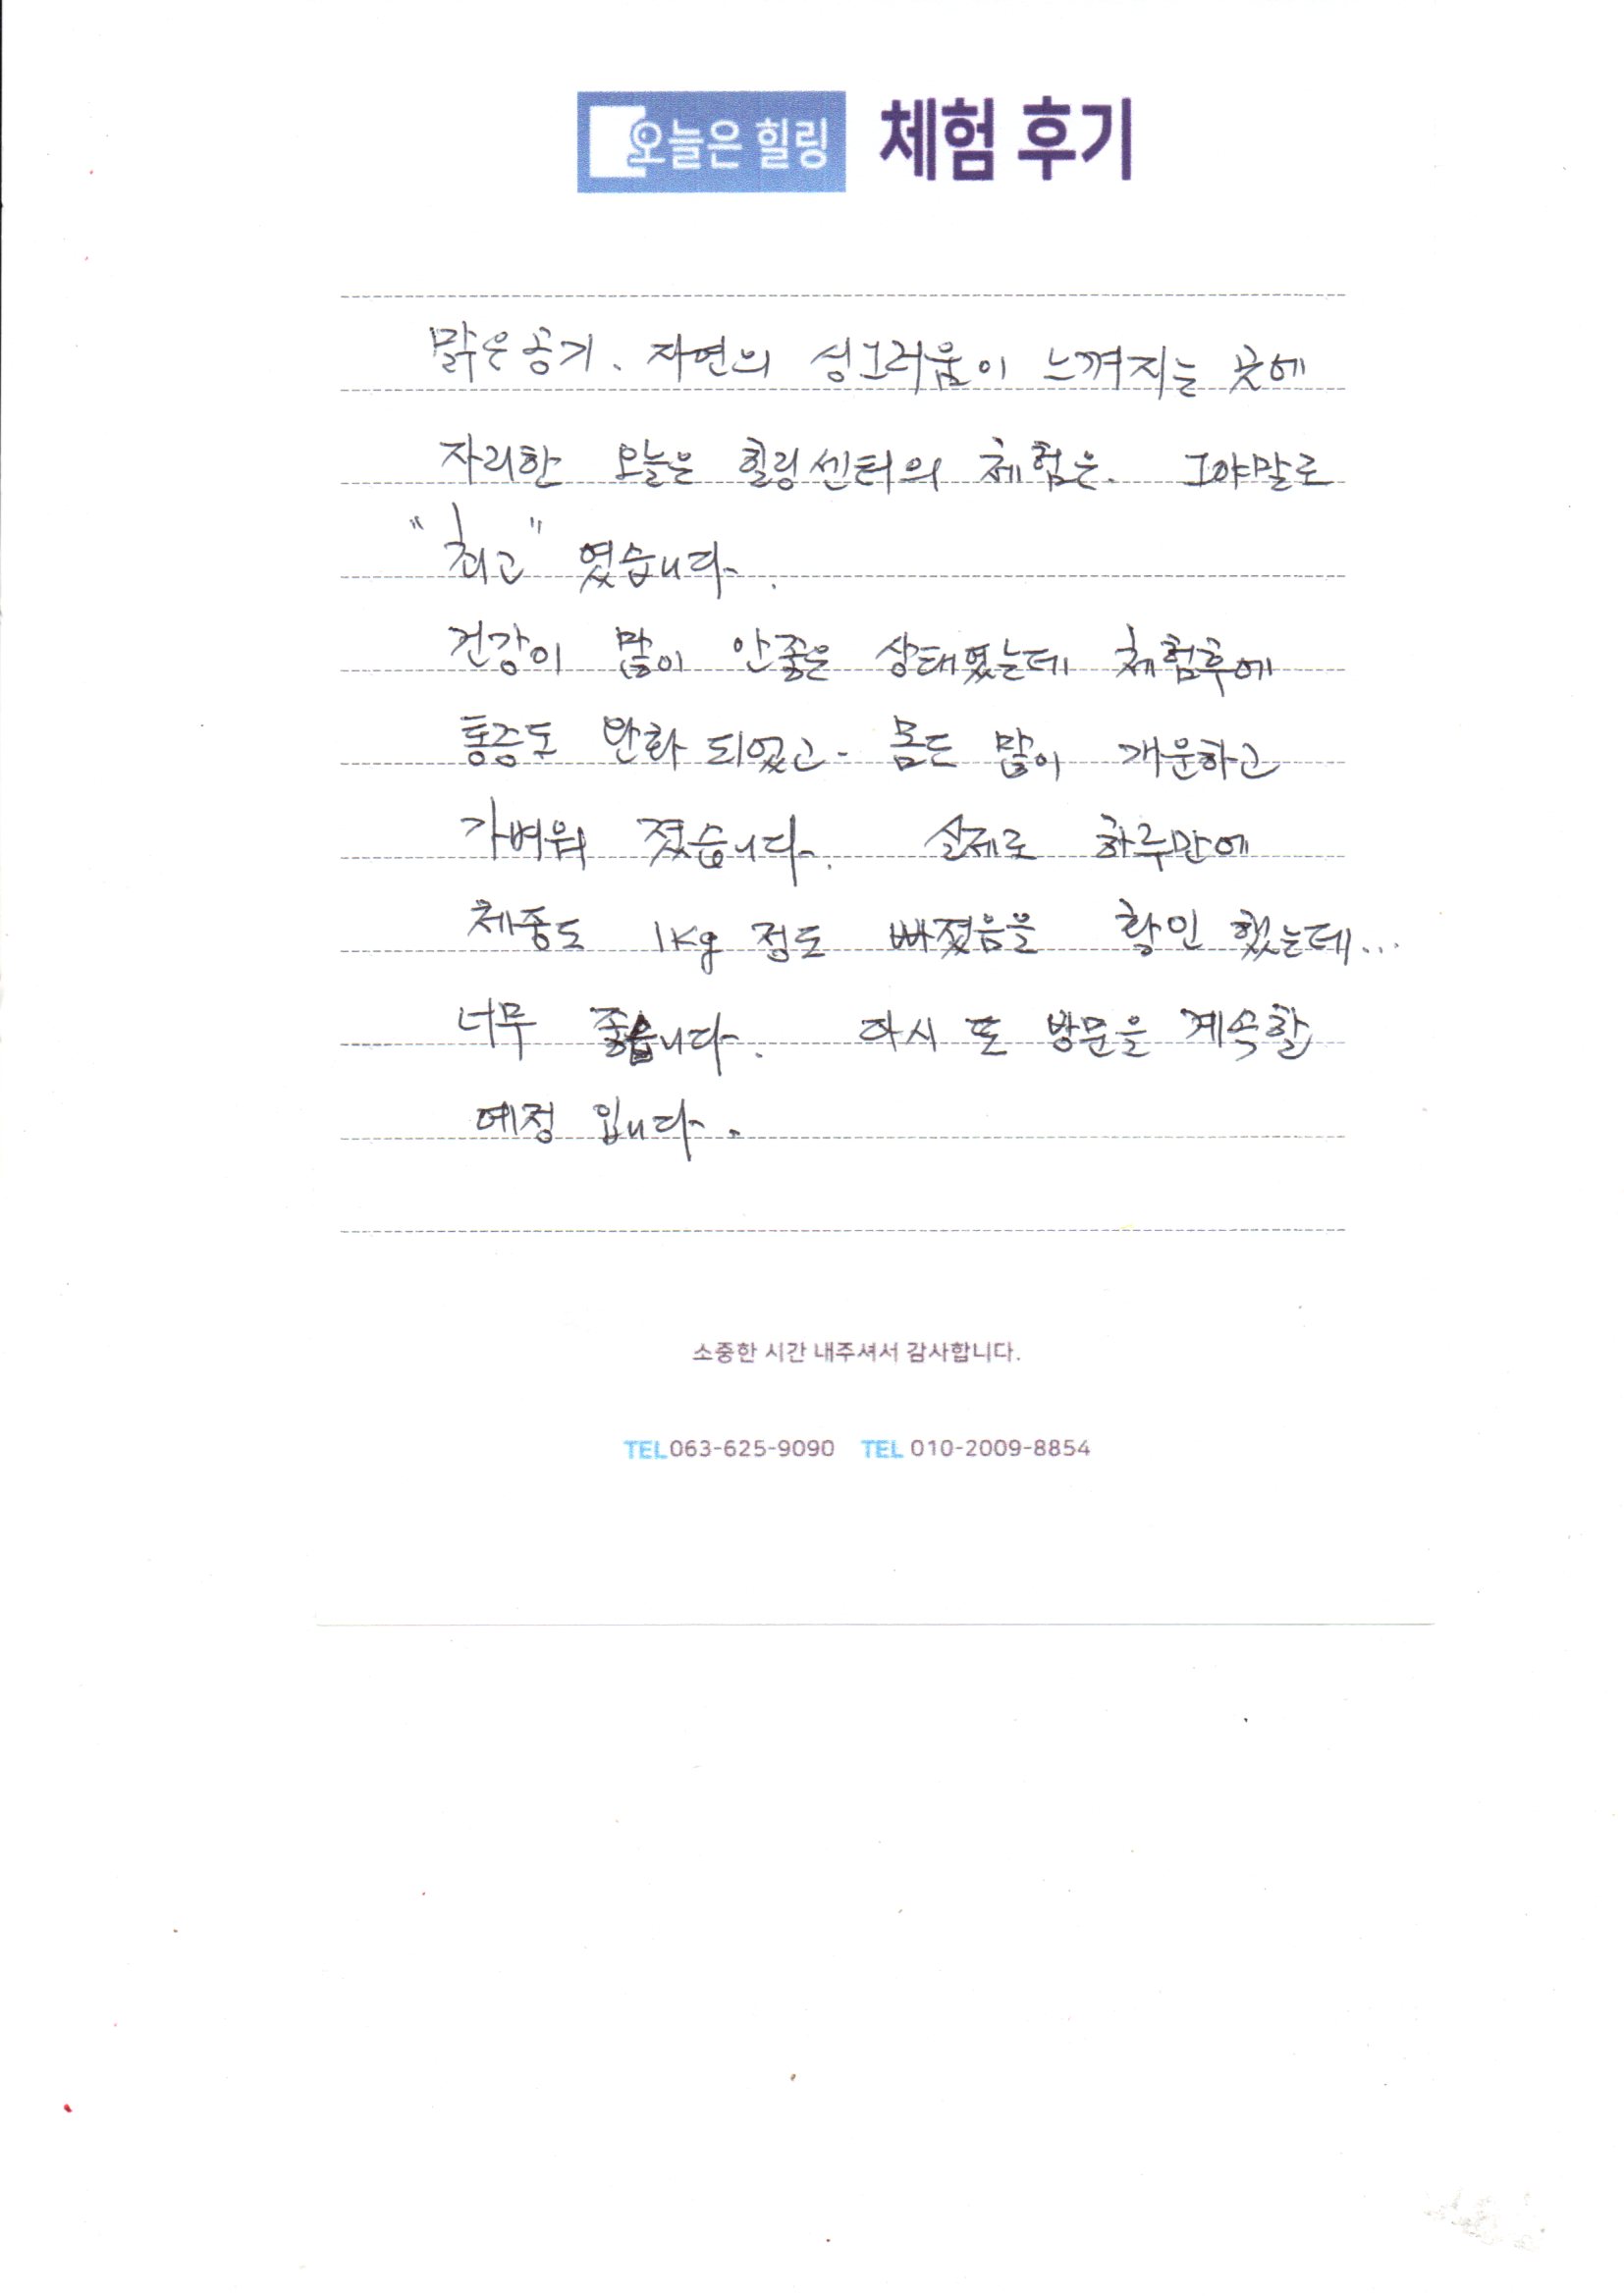 오늘은 힐링 체험 후기
맑은공기. 자연의 싱그러움이 느껴지는 곳에
자리한 오늘은 힐링센터의 체험은. 그야말로
"최고" 였습니다.
건강이 많이 안좋은 상태였는데 체험후에
통증도 완화 되었고. 몸도 많이 개운하고
가벼워 졌습니다. 실제로 하루만에
체중도 1Kg 정도 빠졌음을 확인 했는데...
너무 좋습니다. 다시 또 방문을 계속할
예정 입니다.
소중한 시간 내주셔서 감사합니다.
TEL 063-625-9090 TEL 010-2009-8854